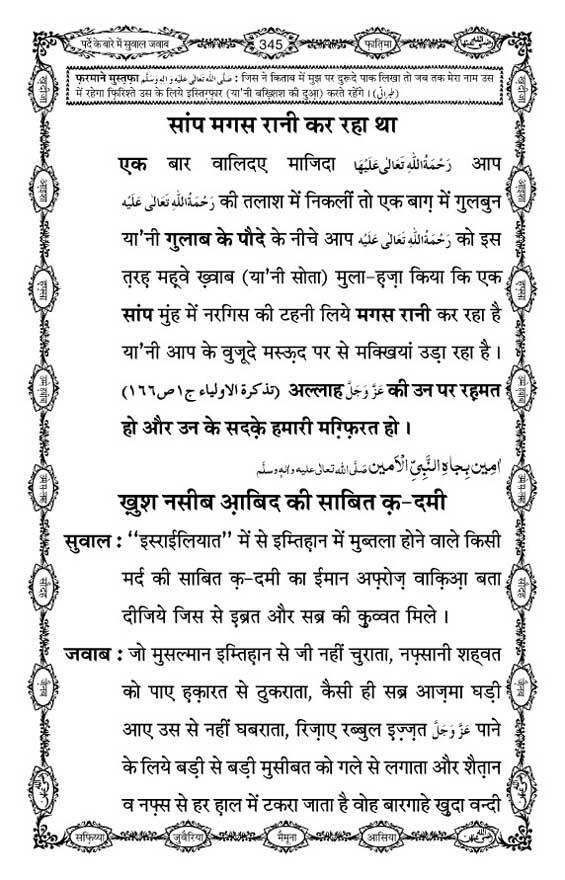 पर्दे के बारे में सुवाल जवाब
345
फ़ातिमा
फ़रमाने मुस्तफ़ा صَلَّى اللّٰه تَعَالٰى عليه وَاٰلِهٖ وَسَلَّم : जिस ने किताब में मुझ पर दुरूदे पाक लिखा तो जब तक मेरा नाम उस
में रहेगा फ़िरिश्ते उस के लिये इस्तिग़्फ़ार (या'नी बख़्शिश की दुआ) करते रहेंगे । (طبرانی)
सांप मगस रानी कर रहा था
एक बार वालिदए माजिदा رَحْمَةُ اللّٰهِ تَعَالٰى عَلَيْهَا आप
رَحْمَةُ اللّٰهِ تَعَالٰى عَلَيْه की तलाश में निकलीं तो एक बाग़ में गुलबुन
या'नी गुलाब के पौदे के नीचे आप رَحْمَةُ اللّٰهِ تَعَالٰى عَلَيْه को इस
त़रह़ मह़्वे ख़्वाब (या'नी सोता) मुला-ह़ज़ा किया कि एक
सांप मुंह में नरगिस की टहनी लिये मगस रानी कर रहा है
या'नी आप के वुजूदे मस्ऊ़द पर से मक्खियां उड़ा रहा है ।
(تذكرة الاولياء ج١ص١٦٦) अल्लाह عَزَّ وَجَلَّ की उन पर रह़मत
हो और उन के सदक़े हमारी मग़्फ़िरत हो ।
اٰمِين بِجَاهِ النَّبِيِّ الْاَمين صَلَّى اللّٰه تعالٰى عليه واٰلهٖ وسلَّم
ख़ुश नसीब आ़बिद की साबित क़-दमी
सुवाल : ‘‘इस्राईलियात’’ में से इम्तिह़ान में मुब्तला होने वाले किसी
मर्द की साबित क़-दमी का ईमान अफ़्रोज़ वाक़िआ़ बता
दीजिये जिस से इ़ब्रत और सब्र की क़ुव्वत मिले ।
जवाब : जो मुसल्मान इम्तिह़ान से जी नहीं चुराता, नफ़्सानी शह्वत
को पाए ह़क़ारत से ठुकराता, कैसी ही सब्र आज़मा घड़ी
आए उस से नहीं घबराता, रिज़ाए रब्बुल इ़ज़्ज़त عَزَّ وَجَلَّ पाने
के लिये बड़ी से बड़ी मुसीबत को गले से लगाता और शैत़ान
व नफ़्स से हर ह़ाल में टकरा जाता है वोह बारगाहे ख़ुदा वन्दी
सफ़िय्या
जुवैरिया
मैमूना
आसिया